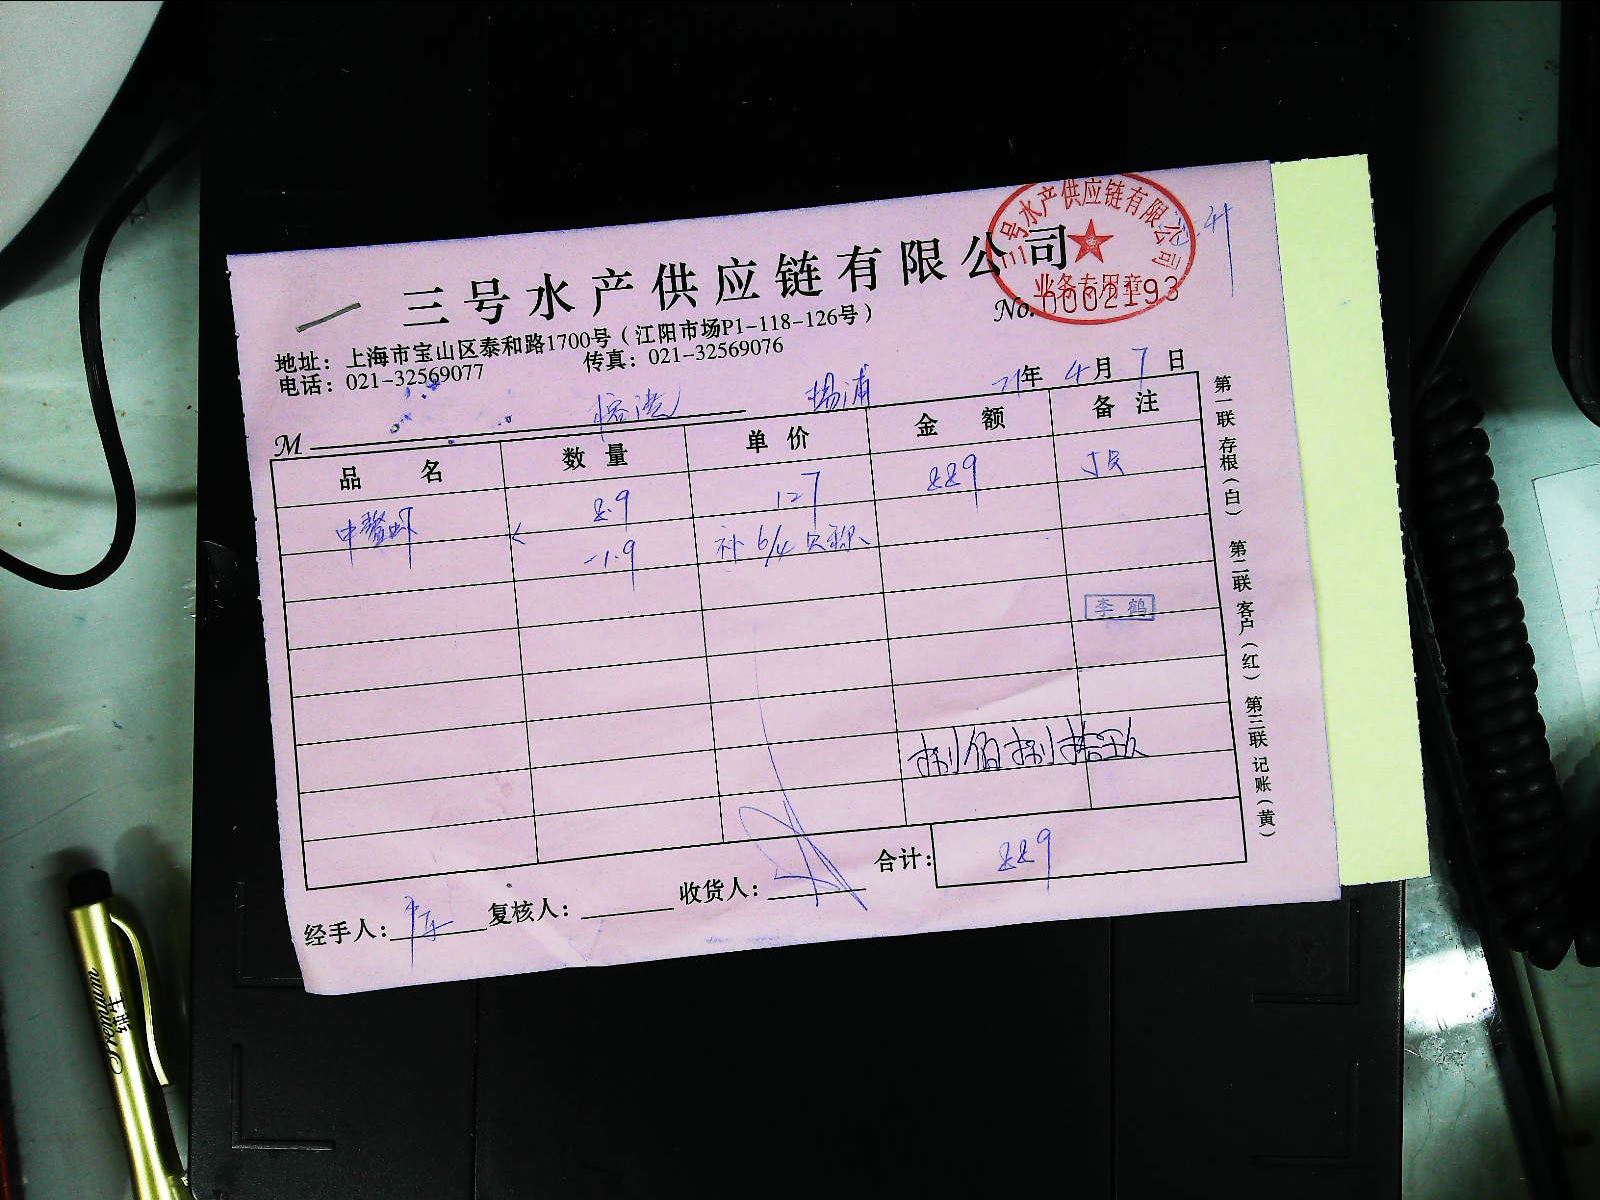 三号水产供应链有限公司
三号水产供应链有限公司
业务专用章
No. 0002193
地址：上海市宝山区泰和路1700号（江阳市场P1-118-126号）
电话：021-32569077 传真：021-32569076
M 杨浦 21年 4月 7日
品名 数量 单价 金额 备注
中螯虾 8.9 127 889
-1.9 补 6/4 欠称
李鹤
捌佰捌拾玖
合计： 889
经手人： 复核人： 收货人：
第一联 存根（白） 第二联 客户（红） 第三联 记账（黄）